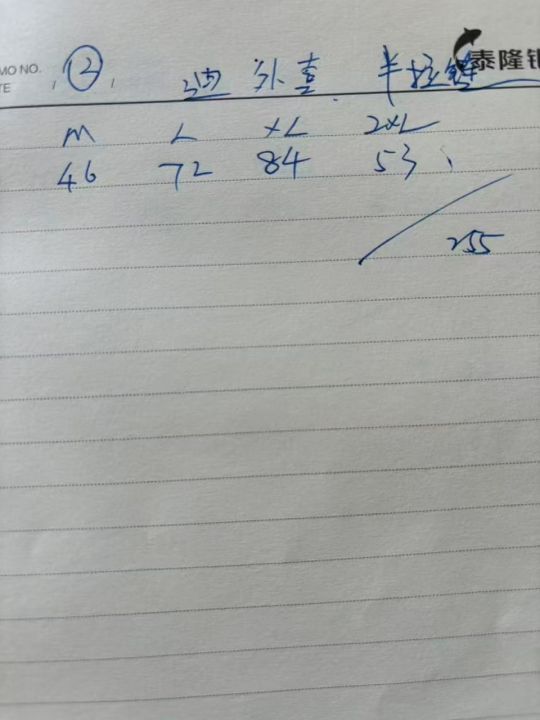 MO NO.
TE
② 外喜 半拉链
泰隆银
M L XL 2XL
46 72 84 53
255